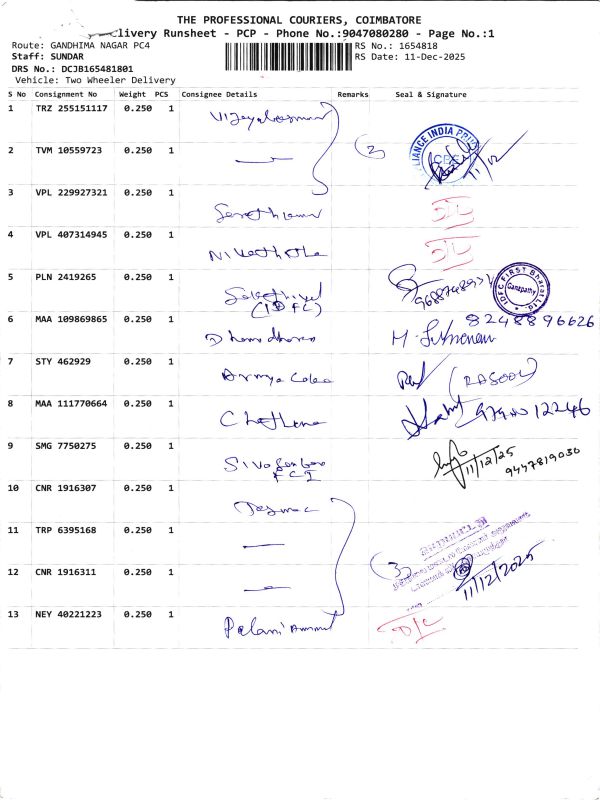 THE PROFESSIONAL COURIERS, COIMBATORE
livery Runsheet - PCP - Phone No.:9047080280 - Page No.:1
Route: GANDHIMA NAGAR PC4
RS No.: 1654818
Staff: SUNDAR
RS Date: 11-Dec-2025
DRS No.: DCJB165481801
Vehicle: Two Wheeler Delivery
S No Consignment No Weight PCS Consignee Details Remarks Seal & Signature
1 TRZ 255151117 0.250 1
2 TVM 10559723 0.250 1
3 VPL 229927321 0.250 1 D/L
4 VPL 407314945 0.250 1 D/L
5 PLN 2419265 0.250 1 IDFC FIRST Bharat Ltd. Ganapathy
(IDFC)
6 MAA 109869865 0.250 1 8248896626
7 STY 462929 0.250 1 (RASOOL)
8 MAA 111770664 0.250 1 Chethena
9 SMG 7750275 0.250 1 11/12/25
FCI 9447819030
10 CNR 1916307 0.250 1
11 TRP 6395168 0.250 1
12 CNR 1916311 0.250 1 (3) 11/12/2025
13 NEY 40221223 0.250 1 Palani Ammal D/L